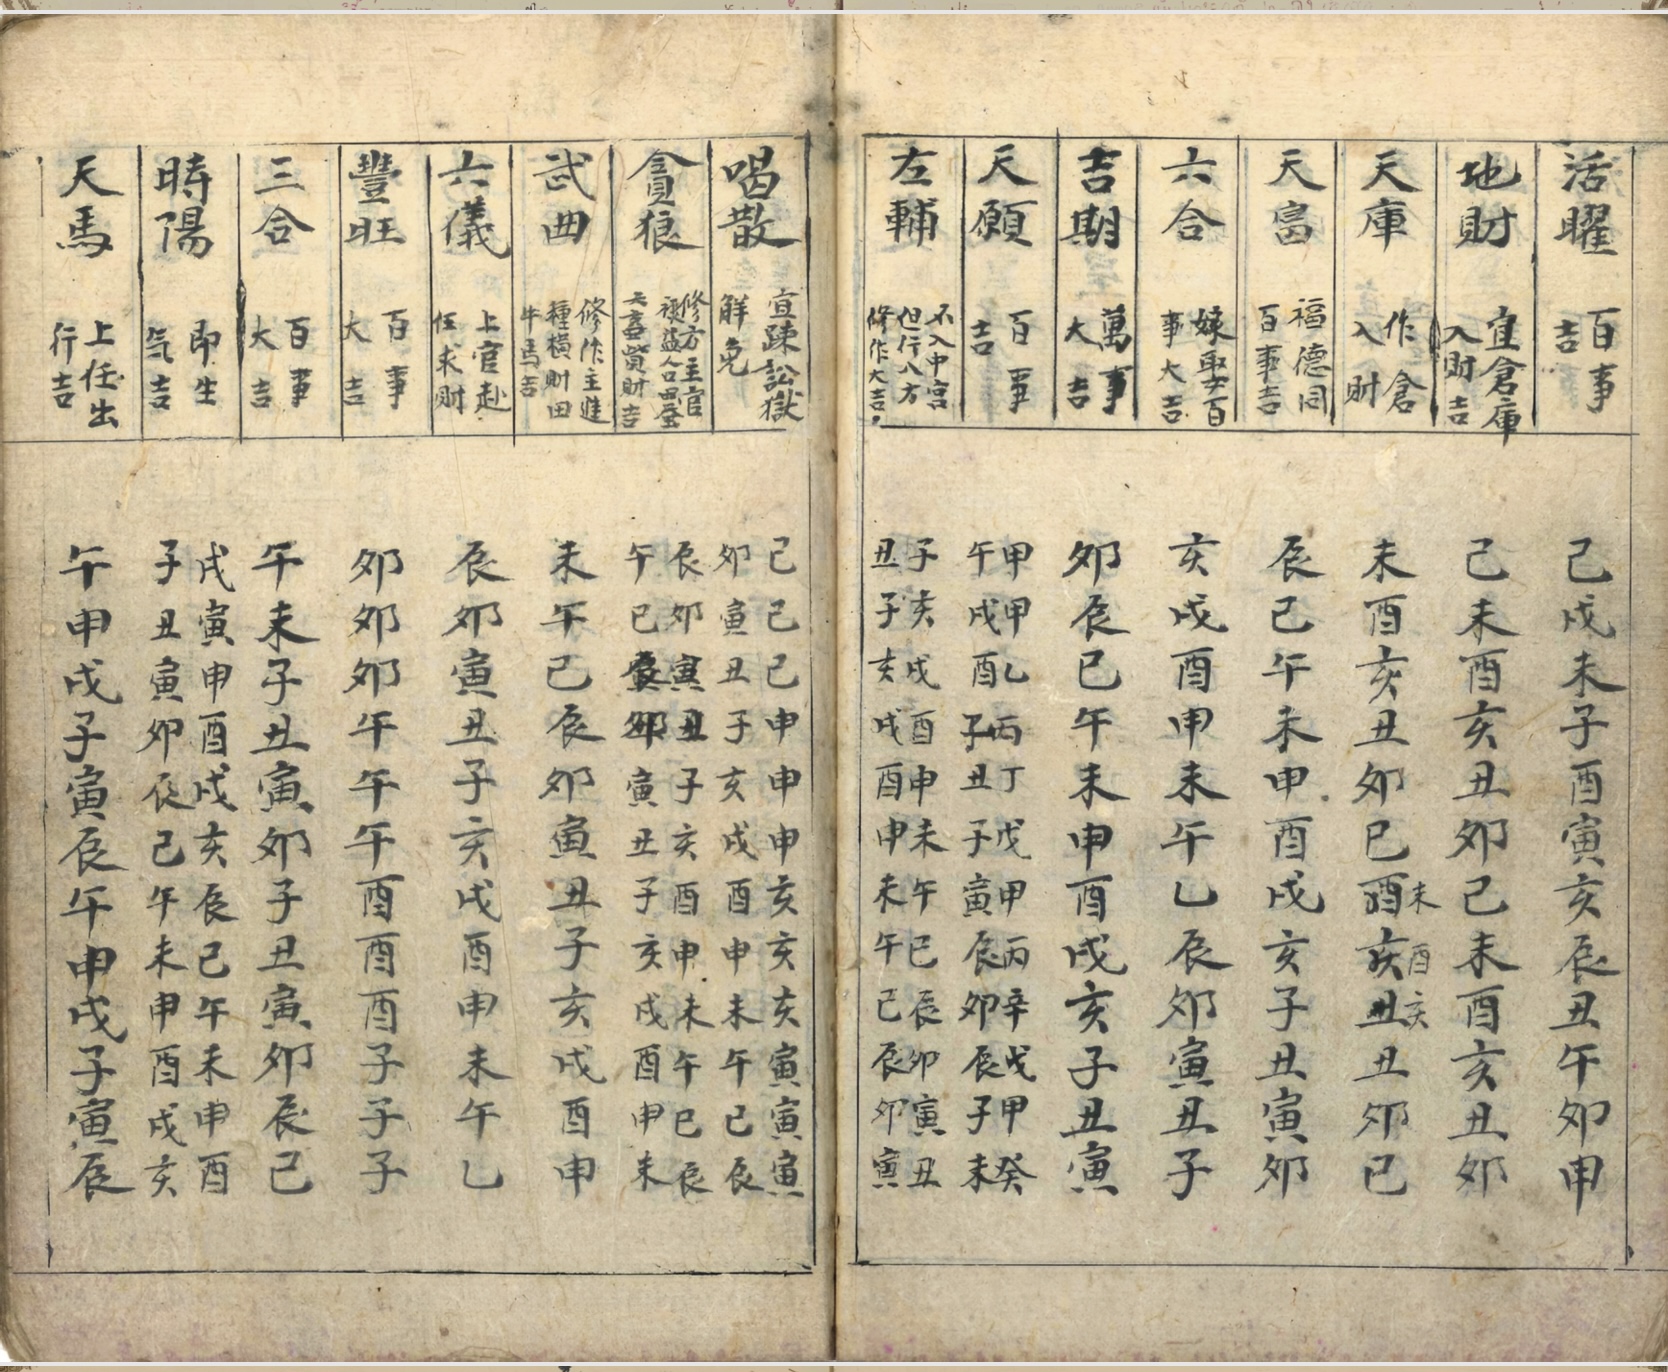 活曜
百事
吉
己戌未子酉寅亥辰丑午卯申
地財
宜倉庫
入財吉
己未酉亥丑卯己未酉亥丑卯
天庫
作倉
入財
未酉亥丑卯巳酉亥丑丑卯巳
未酉亥
天富
福德同
百事吉
辰己午未申酉戌亥子丑寅卯
六合
嫁娶百
事大吉
亥戌酉申未午乙辰卯寅丑子
吉期
萬事
大吉
卯辰巳午未申酉戌亥子丑寅
天願
百事
吉
甲甲乙丙丁戊甲丙辛戊甲癸
午戌酉子丑子寅辰卯辰子未
左輔
不入中宮
但行八方
修作大吉
子亥戌酉申未午巳辰卯寅丑
丑子亥戌酉申未午己辰卯寅
喝散
宜疎訟獄
解免
己己己申申申亥亥亥寅寅寅
卯寅丑子亥戌酉申未午己辰
貪狼
修方主官
祿益人口田蚕
大畜貲財吉
辰卯寅丑子亥酉申未午巳辰
午巳辰卯寅丑子亥戌酉申未
武曲
修作主進
種橫財田
牛馬吉
未午己辰卯寅丑子亥戌酉申
六儀
上官赴
任求財
辰卯寅丑子亥戌酉申未午乙
豐旺
百事
大吉
卯卯卯午午午酉酉酉子子子
三合
百事
大吉
午未子丑寅卯子丑寅卯辰己
時陽
即生
気吉
戌寅申酉戌亥辰己午未申酉
子丑寅卯辰己午未申酉戌亥
天馬
上任出
行吉
午申戌子寅辰午申戌子寅辰